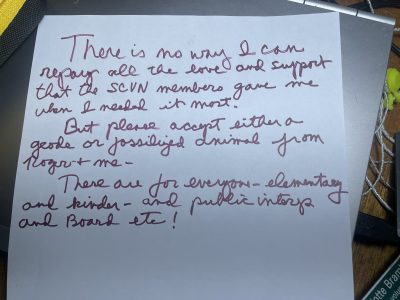 There is no way I can
repay all the love and support
that the SCVN members gave me
when I needed it most.
But please accept either a
geode or fossilized animal from
Roger + me -
There are for everyone - elementary
and kinder - and public interp
and Board etc!
tte Bram